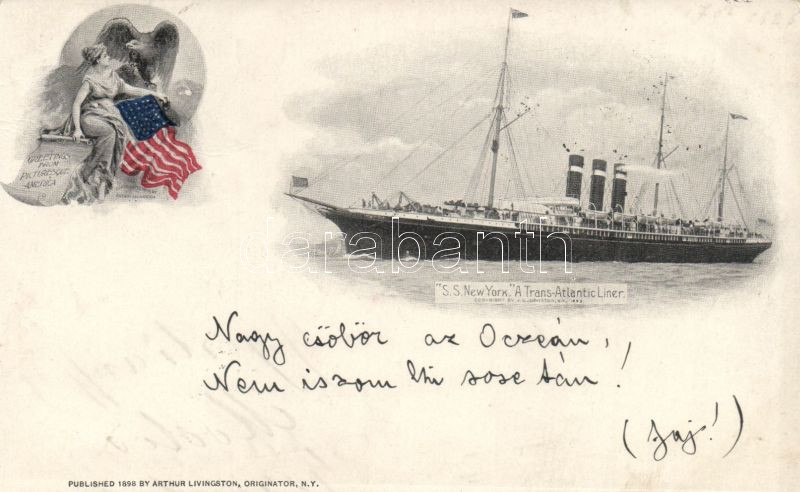 GREETINGS
FROM
PICTURESQUE
AMERICA
"S.S. New York." A Trans-Atlantic Liner.
Darabanth
Nagy csöbör az Oczeán,
Nem iszom ki sose tán!
(Jaj!)
PUBLISHED 1898 BY ARTHUR LIVINGSTON, ORIGINATOR, N.Y.